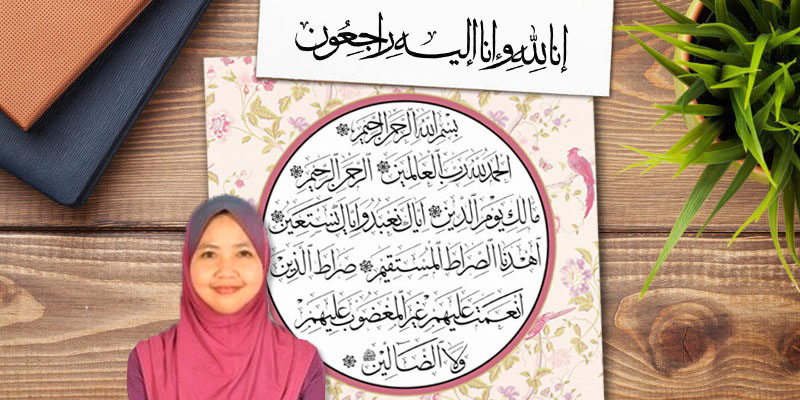 إنا لله وإنا إليه راجعون
بسم الله الرحمن الرحيم
الحمد لله رب العالمين الرحمن الرحيم
مالك يوم الدين اياك نعبد واياك نستعين
اهدنا الصراط المستقيم صراط الذين
أنعمت عليهم غير المغضوب عليهم
ولا الضالين